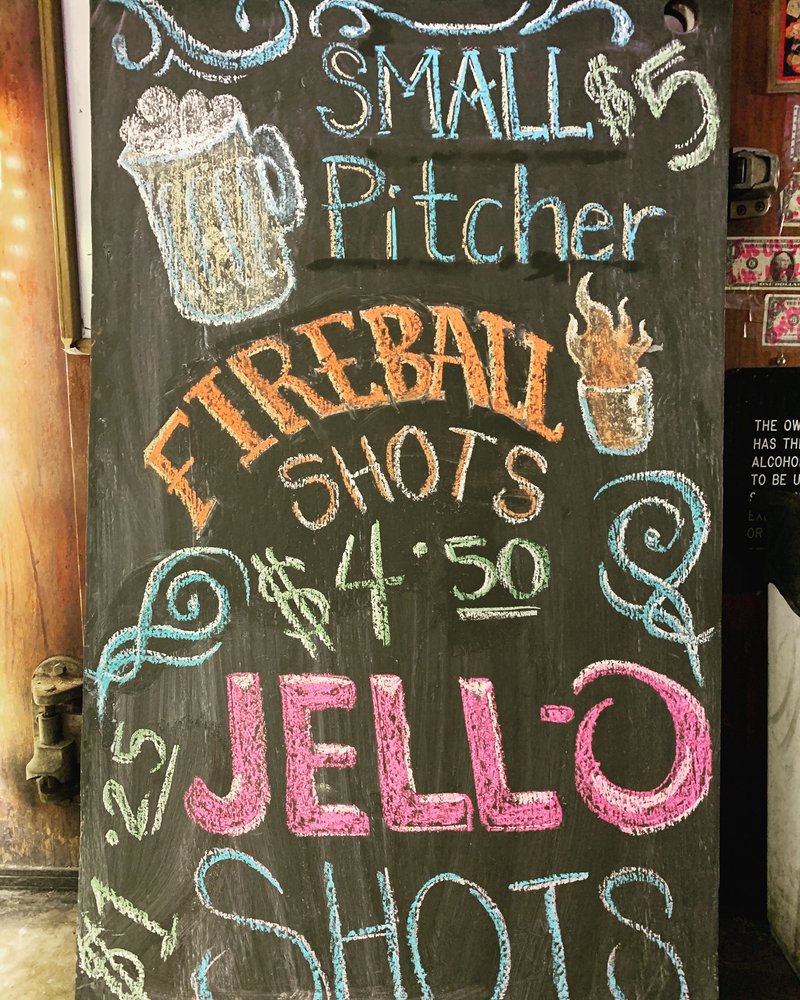 SMALL $5
Pitcher
FIREBALL
SHOTS
$4.50
JELL-O
$1.25
SHOTS
THE OW
HAS TH
ALCOHO
TO BE U
OR
ONE DOLLAR